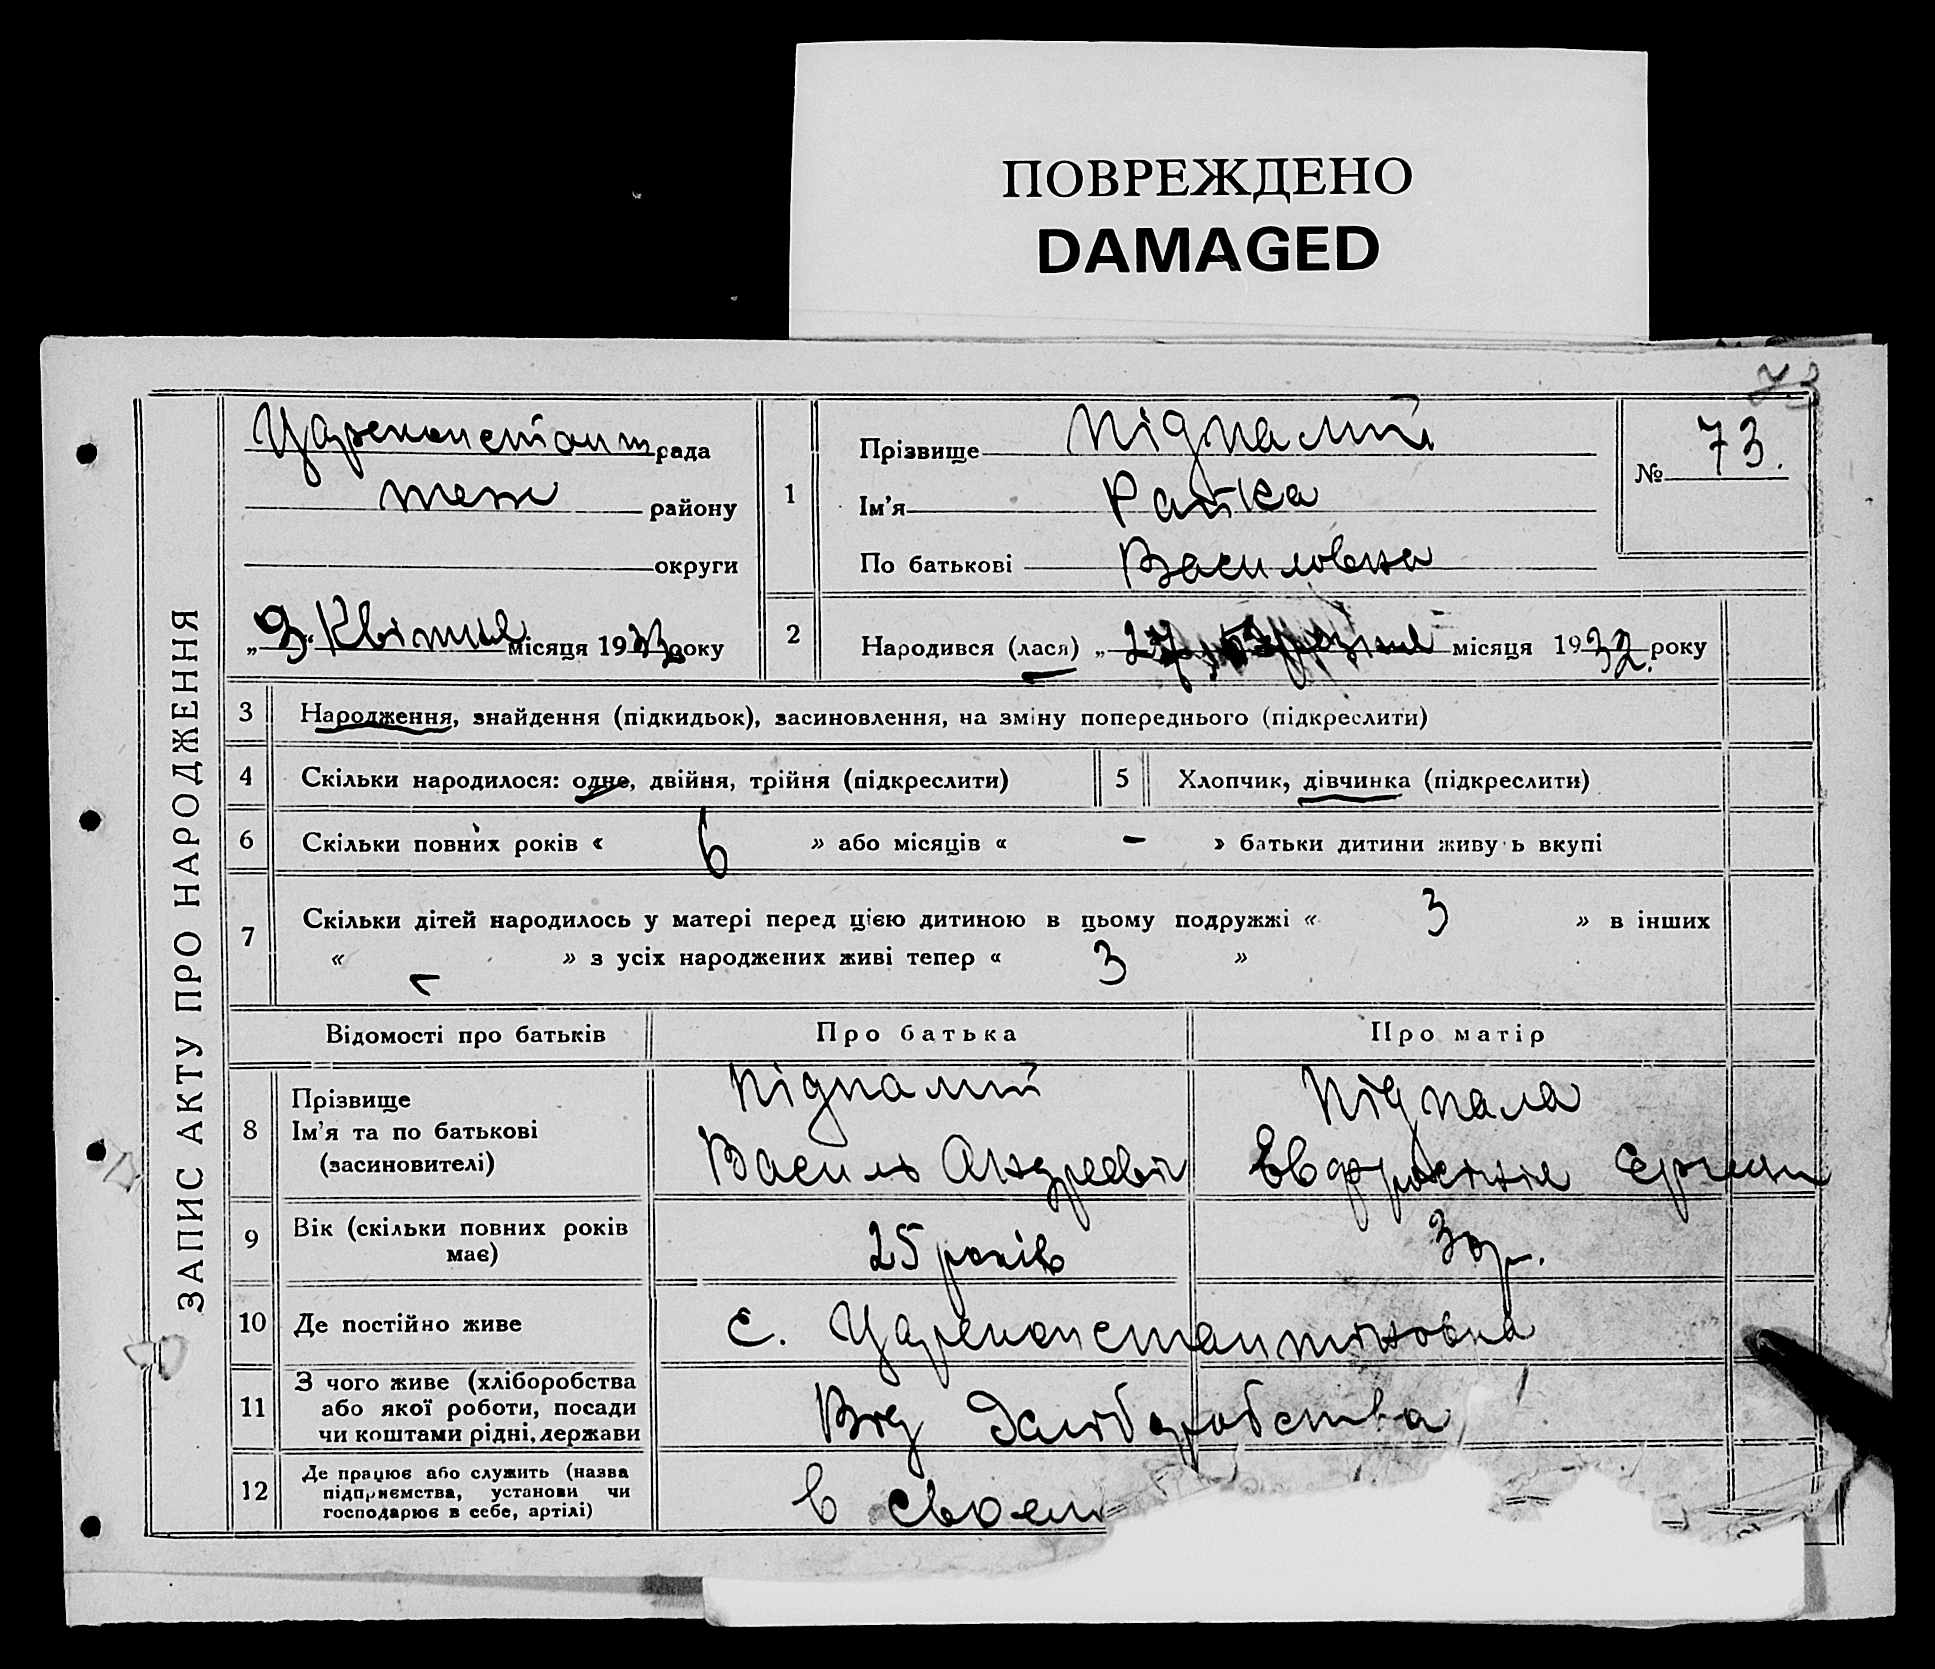 ПОВРЕЖДЕНО
DAMAGED
73
ЗАПИС АКТУ ПРО НАРОДЖЕННЯ
Цареконстант рада
теж району
округи
„ 9 “ Квітня місяця 1932 року
1
Прізвище Підпалий
Ім’я Раїка
По батькові Василовна
№ 73.
2
Народився (лася) „ 27 березня місяця 1932 року
3 Народження, знайдення (підкидьок), засиновлення, на зміну попереднього (підкреслити)
4 Скільки народилося: одне, двійня, трійня (підкреслити)
5 Хлопчик, дівчинка (підкреслити)
6 Скільки повних років « 6 » або місяців « - » батьки дитини живуь вкупі
7 Скільки дітей народилось у матері перед цією дитиною в цьому подружжі « 3 » в інших
« - » з усіх народжених живі тепер « 3 »
Відомості про батьків
Про батька
Про матір
8 Прізвище
Ім’я та по батькові
(засиновителі)
Підпалий
Василь Андреевіч
Підпала
Евфросінія
9 Вік (скільки повних років
має)
25 років
30 р.
10 Де постійно живе
с. Цареконстантіновка
11 З чого живе (хліборобства
або якої роботи, посади
чи коштами рідні, держави
Від хліборобства
12 Де працює або служить (назва
підприємства, установи чи
господарює в себе, артілі)
в своєм